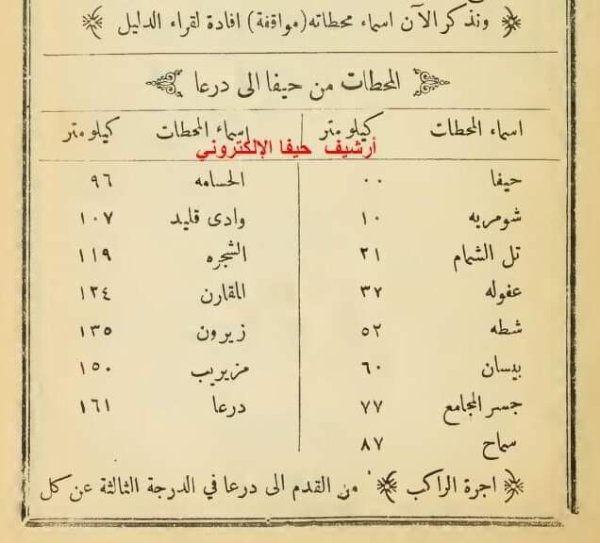 ونذكر الآن اسماء محطاته (مواقفة) افادة لقراء الدليل
المحطات من حيفا الى درعا
اسماء المحطات كيلومتر اسماء المحطات كيلومتر
أرشيف حيفا الإلكتروني
حيفا ٠٠ الحسامه ٩٦
شومريه ١٠ وادى قليد ١٠٧
تل الشمام ٢١ الشجره ١١٩
عفوله ٣٧ المقارن ١٢٤
شطه ٥٢ زيرون ١٣٥
بيسان ٦٠ مزيريب ١٥٠
جسر المجامع ٧٧ درعا ١٦١
سماح ٨٧
اجرة الراكب من القدم الى درعا في الدرجة الثالثة عن كل